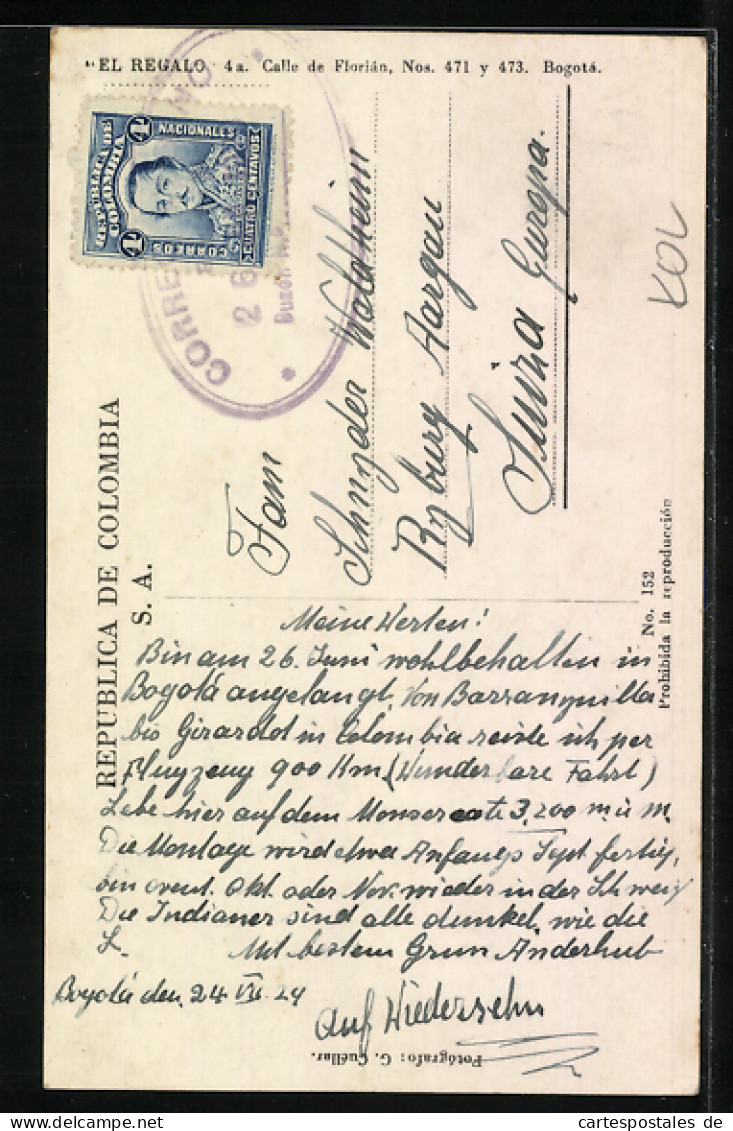 "EL REGALO" 4a. Calle de Florián, Nos. 471 y 473. Bogotá.
REPUBLICA DE COLOMBIA
NACIONALES
CORREOS
CUATRO CENTAVOS
4
4
CORRE
NO
26
Buzón
Fam
Schnyder Waldheim
Ryburg Aargau
Suiza Europa.
KOL
REPUBLICA DE COLOMBIA
S. A.
No. 152
Prohibida la reproducción
Meine Werten!
Bin am 26. Juni wohlbehalten in
Bogotá angelangt, von Barranquilla
bis Girardot in Colombia reiste ich per
Flugzeug 900 Km. (Wunderbare Fahrt)
Lebe hier auf dem Monserate 3,200 m ü m.
Die Montage wird etwa Anfangs Sept fertig,
bin event. Okt. oder Nov. wieder in der Schweiz
Die Indianer sind alle dunkel, wie die
S. Mit bestem Gruss Anderhub
Bogotá den 24 VII. 24
auf Wiedersehn
Fotógrafo: G. Cuéllar.
www.oldthing.com
cartespostales.de